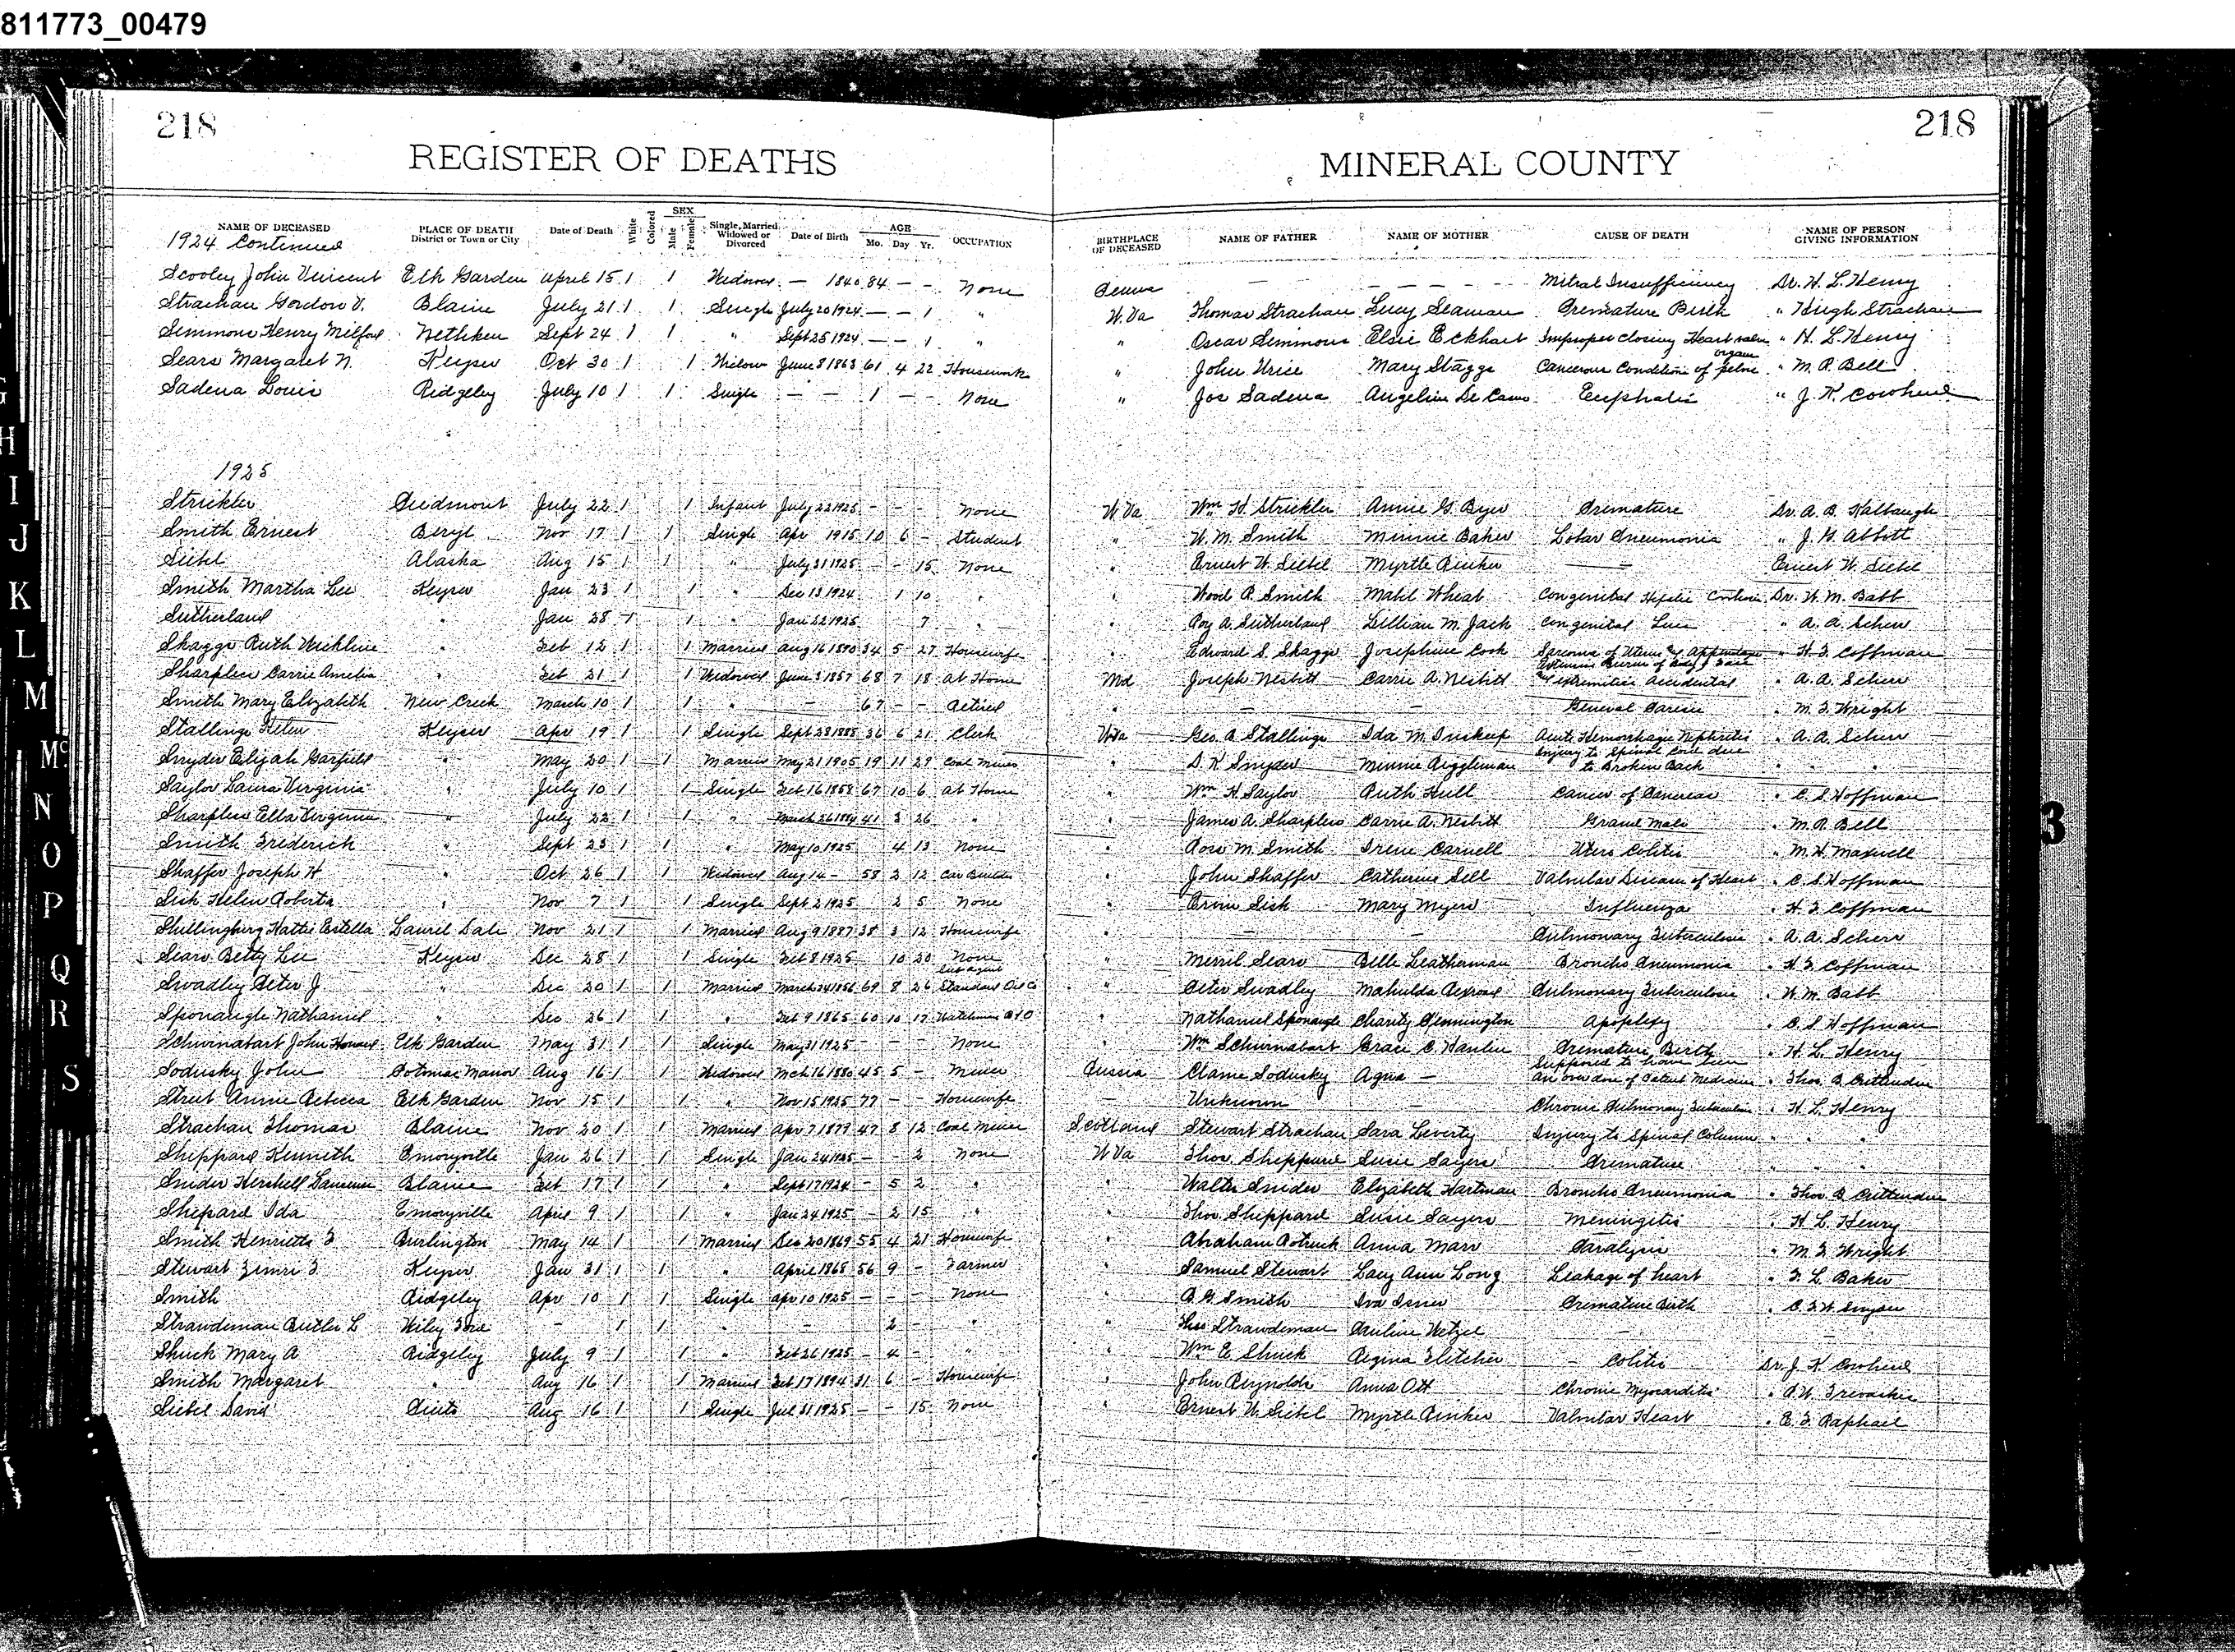 811773_00479
218
218
REGISTER OF DEATHS
MINERAL COUNTY
NAME OF DECEASED PLACE OF DEATH District or Town or City Date of Death White Colored SEX Male Female Single, Married Widowed or Divorced Date of Birth AGE Mo. Day Yr. OCCUPATION BIRTHPLACE OF DECEASED NAME OF FATHER NAME OF MOTHER CAUSE OF DEATH NAME OF PERSON GIVING INFORMATION
1924 Continued
Scooley John Vincent Elk Garden April 15 1 1 Widowed — 1840 84 — — None Penna — — — — — Mitral Insufficiency Dr. H. L. Henry
Strachan Gordon V. Blaine July 21 1 1 Single July 20 1924 — — 1 " W. Va Thomas Strachan Lucy Seaman Premature Birth " Hugh Strachan
Simmons Henry Milford Nethken Sept 24 1 1 " Sept 25 1924 — — 1 " " Oscar Simmons Elsie Eckhart Improper closing Heart valve " H. L. Henry
Sears Margaret N. Keyser Oct 30 1 1 Widow June 8 1863 61 4 22 Housework " John Urice Mary Staggs Cancerous Condition of pelvic organs " M. R. Bell
Sadena Louis Ridgeley July 10 1 1 Single — — 1 — — None " Jos Sadena Angeline " J. K. Cowherd
1925
Strickler Piedmont July 22 1 1 Infant July 22 1925 - - - None W Va Wm H. Strickler Annie G. Byer Premature Dr. A. B. Kalbaugh
Smith Ernest Beryl Nov 17 1 1 Single Apr 1915 10 6 - Student " W. M. Smith Minnie Baker Lobar Pneumonia " J. H. Abbott
Siebel Alaska Aug 15 1 1 " July 31 1925 - - 15 None " Ernest W. Siebel Myrtle Rinker — Ernest W. Siebel
Smith Martha Lee Keyser Jan 23 1 1 " Dec 13 1924 1 10 " " Wood R. Smith Mabel Wheat Congenital Dr. W. M. Babb
Sutherland " Jan 28 1 1 " Jan 22 1925 7 " " Roy A. Sutherland Lillian M. Jack Congenital Lues " A. A. Scherr
Skaggs Ruth Wickline " Feb 12 1 1 Married Aug 16 1890 34 5 27 Housewife " Edward S. Skaggs Josephine Cook Sarcoma of Uterus & Appendages " H. F. Coffman
Sharpless Carrie Amelia " Feb 21 1 1 Widowed June 3 1857 68 7 18 at Home Md Joseph Nesbitt Carrie A. Nesbitt Extensive Burns of Body & Face and extremities Accidental " A. A. Scherr
Smith Mary Elizabeth New Creek March 10 1 1 " — 67 — — Retired " — — General Paresis " M. F. Wright
Stallings Helen Keyser Apr 19 1 1 Single Sept 28 1888 36 6 21 Clerk W Va Geo. R. Stallings Ida M. Inskeep Acute Hemorrhagic Nephritis " A. A. Scherr
Snyder Elijah Garfield " May 20 1 1 Married May 21 1905 19 11 29 Coal Miner " D. K. Snyder Minnie Riggleman Injury to Spinal Cord due to Broken Back " "
Saylor Laura Virginia " July 10 1 1 Single Feb 16 1858 67 10 6 at Home " Wm H Saylor Ruth Hull Cancer of Pancreas " C. S. Hoffman
Sharpless Ella Virginia " July 22 1 1 " March 26 1884 41 3 26 " " James A. Sharpless Carrie A. Nesbitt Grand Male " M. R. Bell
Smith Frederick " Sept 23 1 " May 10 1925 4 13 None " Ross M. Smith Irene Carnell Colitis " M. H. Maxwell
Shaffer Joseph H " Oct 26 1 1 Widowed Aug 14 - 58 2 12 Car Builder " John Shaffer Catherine Sell Valvular Disease of Heart " C. S. Hoffman
Sisk Helen Roberta " Nov 7 1 1 Single Sept 2 1925 2 5 None " Sisk Mary Myers Influenza " H. F. Coffman
Shillingburg Hattie Estella Laurel Dale Nov 21 1 1 Married Aug 9 1887 38 3 12 Housewife " — — Pulmonary Tuberculosis " A. A. Scherr
Sears Betty Lee Keyser Dec 28 1 1 Single Feb 8 1925 10 20 None " Merril Sears Belle Leatherman Broncho Pneumonia " H. F. Coffman
Swadley Peter J. " Dec 20 1 1 Married March 24 1856 69 8 26 Standard Oil Co " Peter Swadley Mahulda Pulmonary Tuberculosis " W. M. Babb
Sponaugle Nathaniel " Dec 26 1 1 " Feb 9 1865 60 10 17 Watchman B & O " Nathaniel Sponaugle Charity Pennington Apoplexy " C. S. Hoffman
Schwinabart John Howard Elk Garden May 31 1 1 Single May 31 1925 - - - None " Wm Schwinabart Grace C. Hanlin Premature Birth " H. L. Henry
Sodusky John Potomac Manor Aug 16 1 1 Widowed Mch 16 1880 45 5 - Miner Russia Clame Sodusky Agna — Supposed to have been an overdose of Patent Medicine " Thos. B. Crittenden
Street Annie Rebecca Elk Garden Nov 15 1 1 " Nov 15 1925 77 - - Housewife — Unknown — Chronic Pulmonary Tuberculosis " H. L. Henry
Strachan Thomas Blaine Nov 20 1 1 Married Apr 7 1879 47 8 12 Coal Miner Scotland Stewart Strachan Sara Leverty Injury to Spinal Column " "
Sheppard Kenneth Emoryville Jan 26 1 1 Single Jan 24 1925 - - 2 None W Va Thos. Sheppard Susie Sayers Premature " "
Snider Hershell Blaine Feb 17 1 1 " Sept 17 1924 - 5 2 " " Walter Snider Elizabeth Hartman Broncho Pneumonia " Thos. B. Crittenden
Shepard Ida Emoryville April 9 1 1 " Jan 24 1925 - 2 15 " " Thos. Sheppard Susie Sayers Meningitis " H. L. Henry
Smith Henrietta F Burlington May 14 1 1 Married Dec 20 1869 55 4 21 Housewife " Abraham Rotruck Anna Paralysis " M. F. Wright
Stewart Zimri F Keyser Jan 31 1 1 " April 1868 56 9 - Farmer " Samuel Stewart Lucy Ann Long Leakage of heart " F. L. Baker
Smith Ridgeley Apr 10 1 1 Single Apr 10 1925 - - - None " B. H. Smith Iva Premature Birth
Strawdeman Butler L Wiley Ford - 1 1 - 2 - " " Strawdeman Pauline Wetzel — —
Shuck Mary A Ridgeley July 9 1 1 " Feb 26 1925 - 4 - " " Wm E. Shuck Regina Fletcher - Colitis Dr. J. K. Cowherd
Smith Margaret " Aug 16 1 1 Married Feb 17 1894 31 6 - Housewife " John Reynolds Anna Ott Chronic Myocarditis
Siebel David Pinto Aug 16 1 1 Single Jul 31 1925 - - 15 None " Ernest W. Siebel Myrtle Rinker Valvular Heart " E. F. Raphael
G
H
I
J
K
L
M
Mc
N
O
P
Q
R
S
3